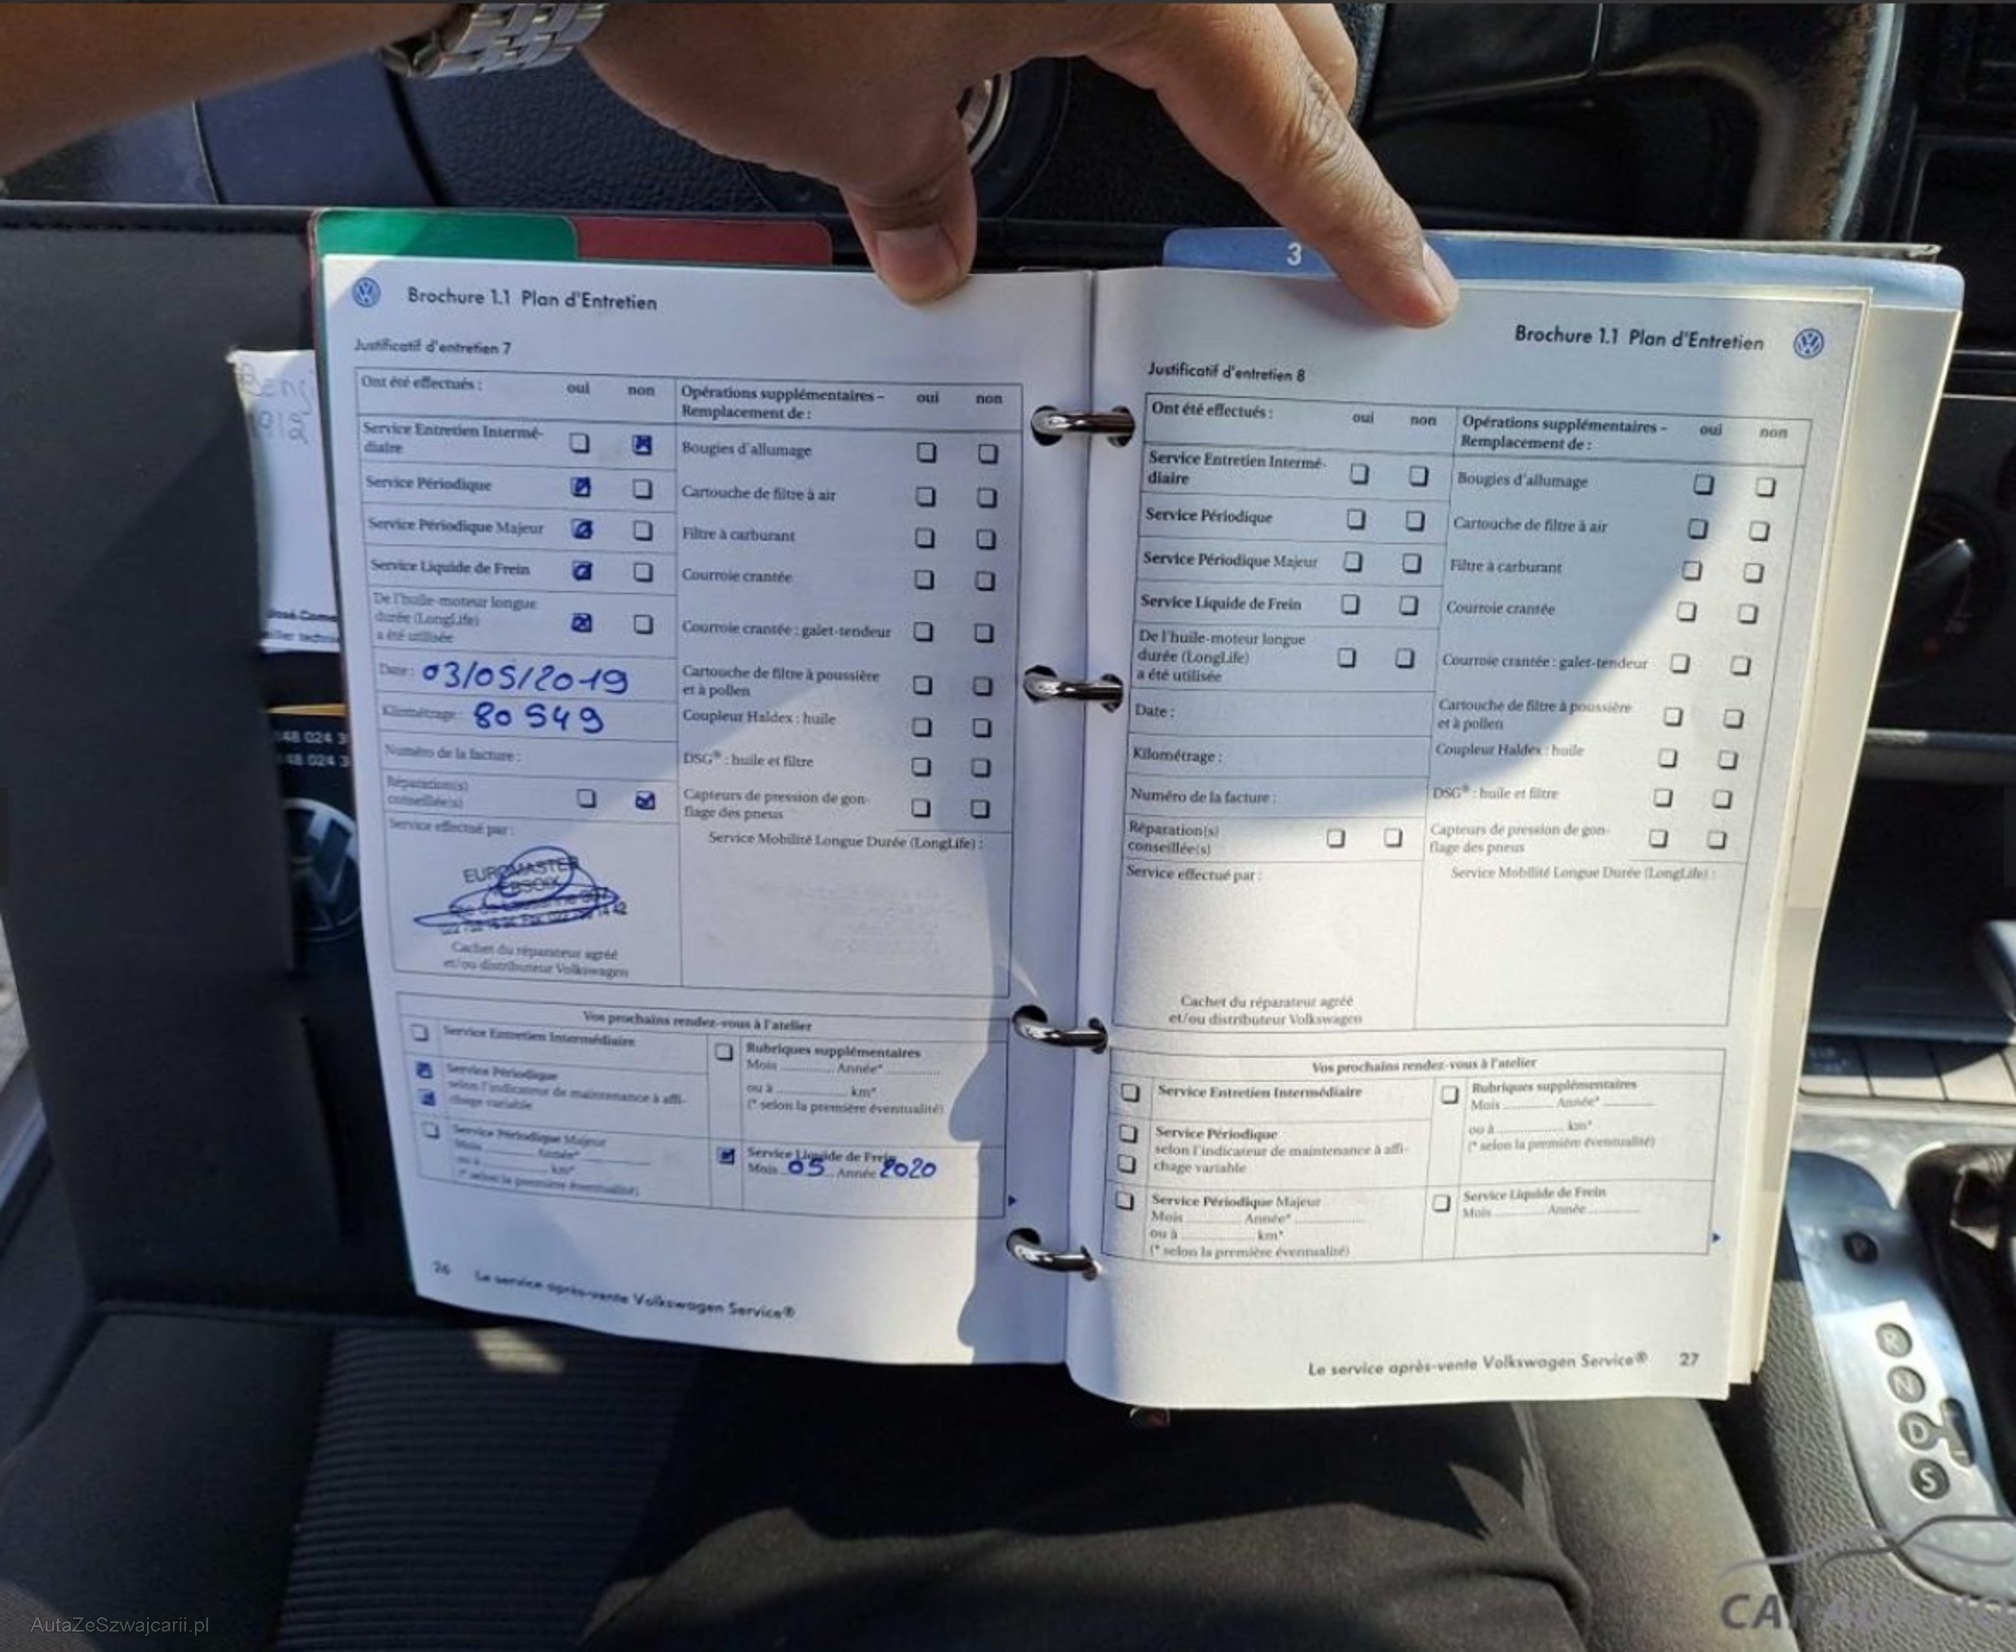 3
Brochure 1.1 Plan d'Entretien
Justificatif d'entretien 7
Ont été effectués :
oui
non
Opérations supplémentaires –
Remplacement de :
oui
non
Service Entretien Intermé-
diaire
Bougies d'allumage
Service Périodique
Cartouche de filtre à air
Service Périodique Majeur
Filtre à carburant
Service Liquide de Frein
Courroie crantée
De l'huile-moteur longue
durée (LongLife)
a été utilisée
Courroie crantée : galet-tendeur
Date : 03/05/2019
Cartouche de filtre à poussière
et à pollen
Kilométrage : 80 549
Coupleur Haldex : huile
Numéro de la facture :
DSG® : huile et filtre
Réparation(s)
conseillée(s)
Capteurs de pression de gon-
flage des pneus
Service effectué par :
Service Mobilité Longue Durée (LongLife) :
EUROMASTER
Cachet du réparateur agréé
et/ou distributeur Volkswagen
Vos prochains rendez-vous à l'atelier
Service Entretien Intermédiaire
Rubriques supplémentaires
Mois ............ Année* ............
ou à ............ km*
(* selon la première éventualité)
Service Périodique
selon l'indicateur de maintenance à affi-
chage variable
Service Périodique Majeur
Mois ............ Année* ............
ou à ............ km*
(* selon la première éventualité)
Service Liquide de Frein
Mois 05 Année 2020
26 Le service après-vente Volkswagen Service®
Brochure 1.1 Plan d'Entretien
Justificatif d'entretien 8
Ont été effectués :
oui
non
Opérations supplémentaires –
Remplacement de :
oui
non
Service Entretien Intermé-
diaire
Bougies d'allumage
Service Périodique
Cartouche de filtre à air
Service Périodique Majeur
Filtre à carburant
Service Liquide de Frein
Courroie crantée
De l'huile-moteur longue
durée (LongLife)
a été utilisée
Courroie crantée : galet-tendeur
Date :
Cartouche de filtre à poussière
et à pollen
Kilométrage :
Coupleur Haldex : huile
Numéro de la facture :
DSG® : huile et filtre
Réparation(s)
conseillée(s)
Capteurs de pression de gon-
flage des pneus
Service effectué par :
Service Mobilité Longue Durée (LongLife) :
Cachet du réparateur agréé
et/ou distributeur Volkswagen
Vos prochains rendez-vous à l'atelier
Service Entretien Intermédiaire
Rubriques supplémentaires
Mois ............ Année* ............
ou à ............ km*
(* selon la première éventualité)
Service Périodique
selon l'indicateur de maintenance à affi-
chage variable
Service Périodique Majeur
Mois ............ Année* ............
ou à ............ km*
(* selon la première éventualité)
Service Liquide de Frein
Mois ............ Année ............
Le service après-vente Volkswagen Service® 27
José
48 024 3
48 024 3
P
R
N
D
S
AutaZeSzwajcarii.pl